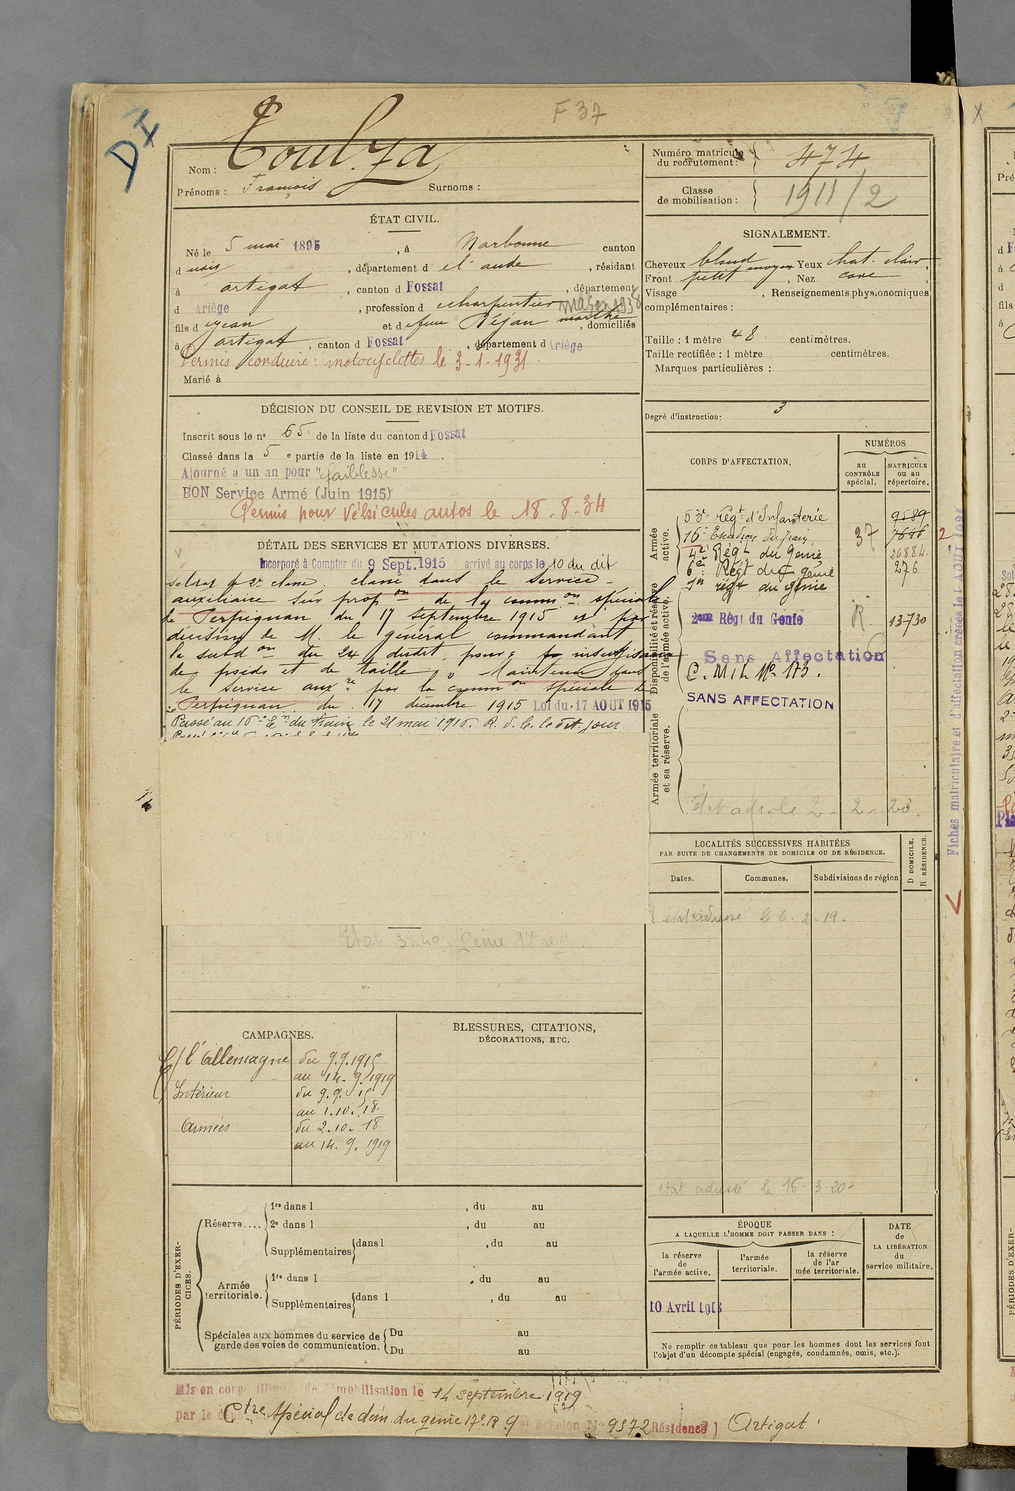 F 37
DI
Nom : Toulza
Prénoms : François Surnoms :
Numéro matricule du recrutement : 474
Classe de mobilisation : 1911/2
ÉTAT CIVIL.
Né le 5 mai 1895, à Narbonne canton
d dudit, département d e l'aude, résidant
à artigat, canton d Fossat, département
d Ariège, profession d charpentier maçon 1938
fils d e jean et d e feue Réjan marthe, domiciliés
à artigat, canton d Fossat, département d Ariège
Permis conduire : motocyclettes le 3-1-1931
Marié à
SIGNALEMENT.
Cheveux blond Yeux chat. clair,
Front petit moyen, Nez cave
Visage , Renseignements physionomiques
complémentaires :
Taille : 1 mètre 48 centimètres.
Taille rectifiée : 1 mètre centimètres.
Marques particulières :
Degré d'instruction : 3
DÉCISION DU CONSEIL DE REVISION ET MOTIFS.
Inscrit sous le nº 65 de la liste du canton d Fossat
Classé dans la 5 e partie de la liste en 1914.
Ajourné à un an pour "faiblesse"
BON Service Armé (Juin 1915)
Permis pour Véhicules autos le 18-8-34
DÉTAIL DES SERVICES ET MUTATIONS DIVERSES.
Incorporé à Compter du 9 Sept. 1915 arrivé au corps le 10 du dit
soldat de 2e classe. classé dans le service
auxiliaire sur propon de la common spéciale
de Perpignan du 17 septembre 1915 et par
décision de M. le général commandant
la subdon du 24 dudit, pour insuffisance
de poids et de taille. Maintenu dans
le service auxre par la common spéciale de
Perpignan du 17 décembre 1915 Loi du 17 AOUT 1915
Passé au 16e En du Train le 21 mai 1916. R. d. C. le dit jour
Etat 31.40 Génie 17e rég
CORPS D'AFFECTATION.
NUMÉROS
AU CONTRÔLE spécial.
MATRICULE ou au répertoire.
Armée active.
53e régt d'Infanterie 9589
16e Escadron du train 37 7666
4e Régt du Génie 24884
6e Régt du génie 276
1er régt du génie
Disponibilité et réserve de l'armée active.
2eme Régt du Genie R. 13730
Sans Affectation
C. M. I. L. No 173.
SANS AFFECTATION
Armée territoriale et sa réserve.
2-2-23.
LOCALITÉS SUCCESSIVES HABITÉES
PAR SUITE DE CHANGEMENTS DE DOMICILE OU DE RÉSIDENCE.
Dates. Communes. Subdivisions de région
D DOMICILE.
R RÉSIDENCE.
le 6.2.19.
état adressé le 16-3-20-
CAMPAGNES.
C/ l'allemagne du 9.9.1915
au 14.9.1919
Intérieur du 9.9.15
au 1.10.18.
Armées du 2.10.18
au 14.9.1919
BLESSURES, CITATIONS,
DÉCORATIONS, ETC.
PÉRIODES D'EXERCICES.
Réserve....
1re dans l , du au
2e dans l , du au
Supplémentaires dans l , du au
Armée territoriale.
1re dans l , du au
Supplémentaires dans l , du au
Spéciales aux hommes du service de garde des voies de communication.
Du au
Du au
ÉPOQUE
A LAQUELLE L'HOMME DOIT PASSER DANS :
la réserve de l'armée active.
l'armée territoriale.
la réserve de l'armée territoriale.
DATE de LA LIBÉRATION du service militaire.
10 Avril 1918
Ne remplir ce tableau que pour les hommes dont les services font
l'objet d'un décompte spécial (engagés, condamnés, omis, etc.).
Mis en congé illimité de démobilisation le 14 septembre 1919
par le
Ctre spécial de dém. du génie 17e R 9 echelon No 9372 Résidence Artigat
Fiches matriculaire et d'affectation créées le 4 AOUT 192